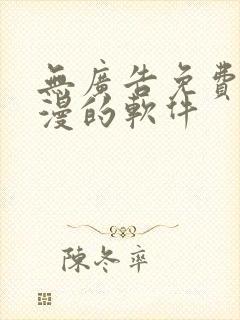 無廣告免費
漫的軟件
陳冬率